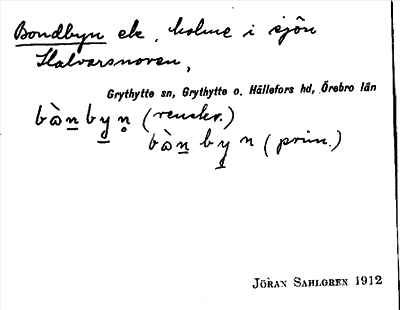 Bondbyn ek. holme i sjön
Halvarsnoren,
Grythytte sn, Grythytte o. Hällefors hd, Örebro län
bòn̲by̲n̥ (renskr.)
bòn̲ by̲n (prim.)
JÖRAN SAHLGREN 1912